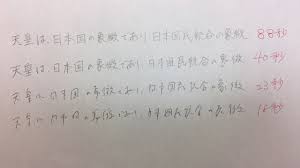 天皇は、日本国の象徴であり日本国民統合の象徴 88秒
天皇は、日本国の象徴であり、日本国民統合の象徴 40秒
天皇は日本国の象徴であり、日本国民統合の象徴 23秒
天皇は日本国の象徴であり、日本国民統合の象徴 16秒